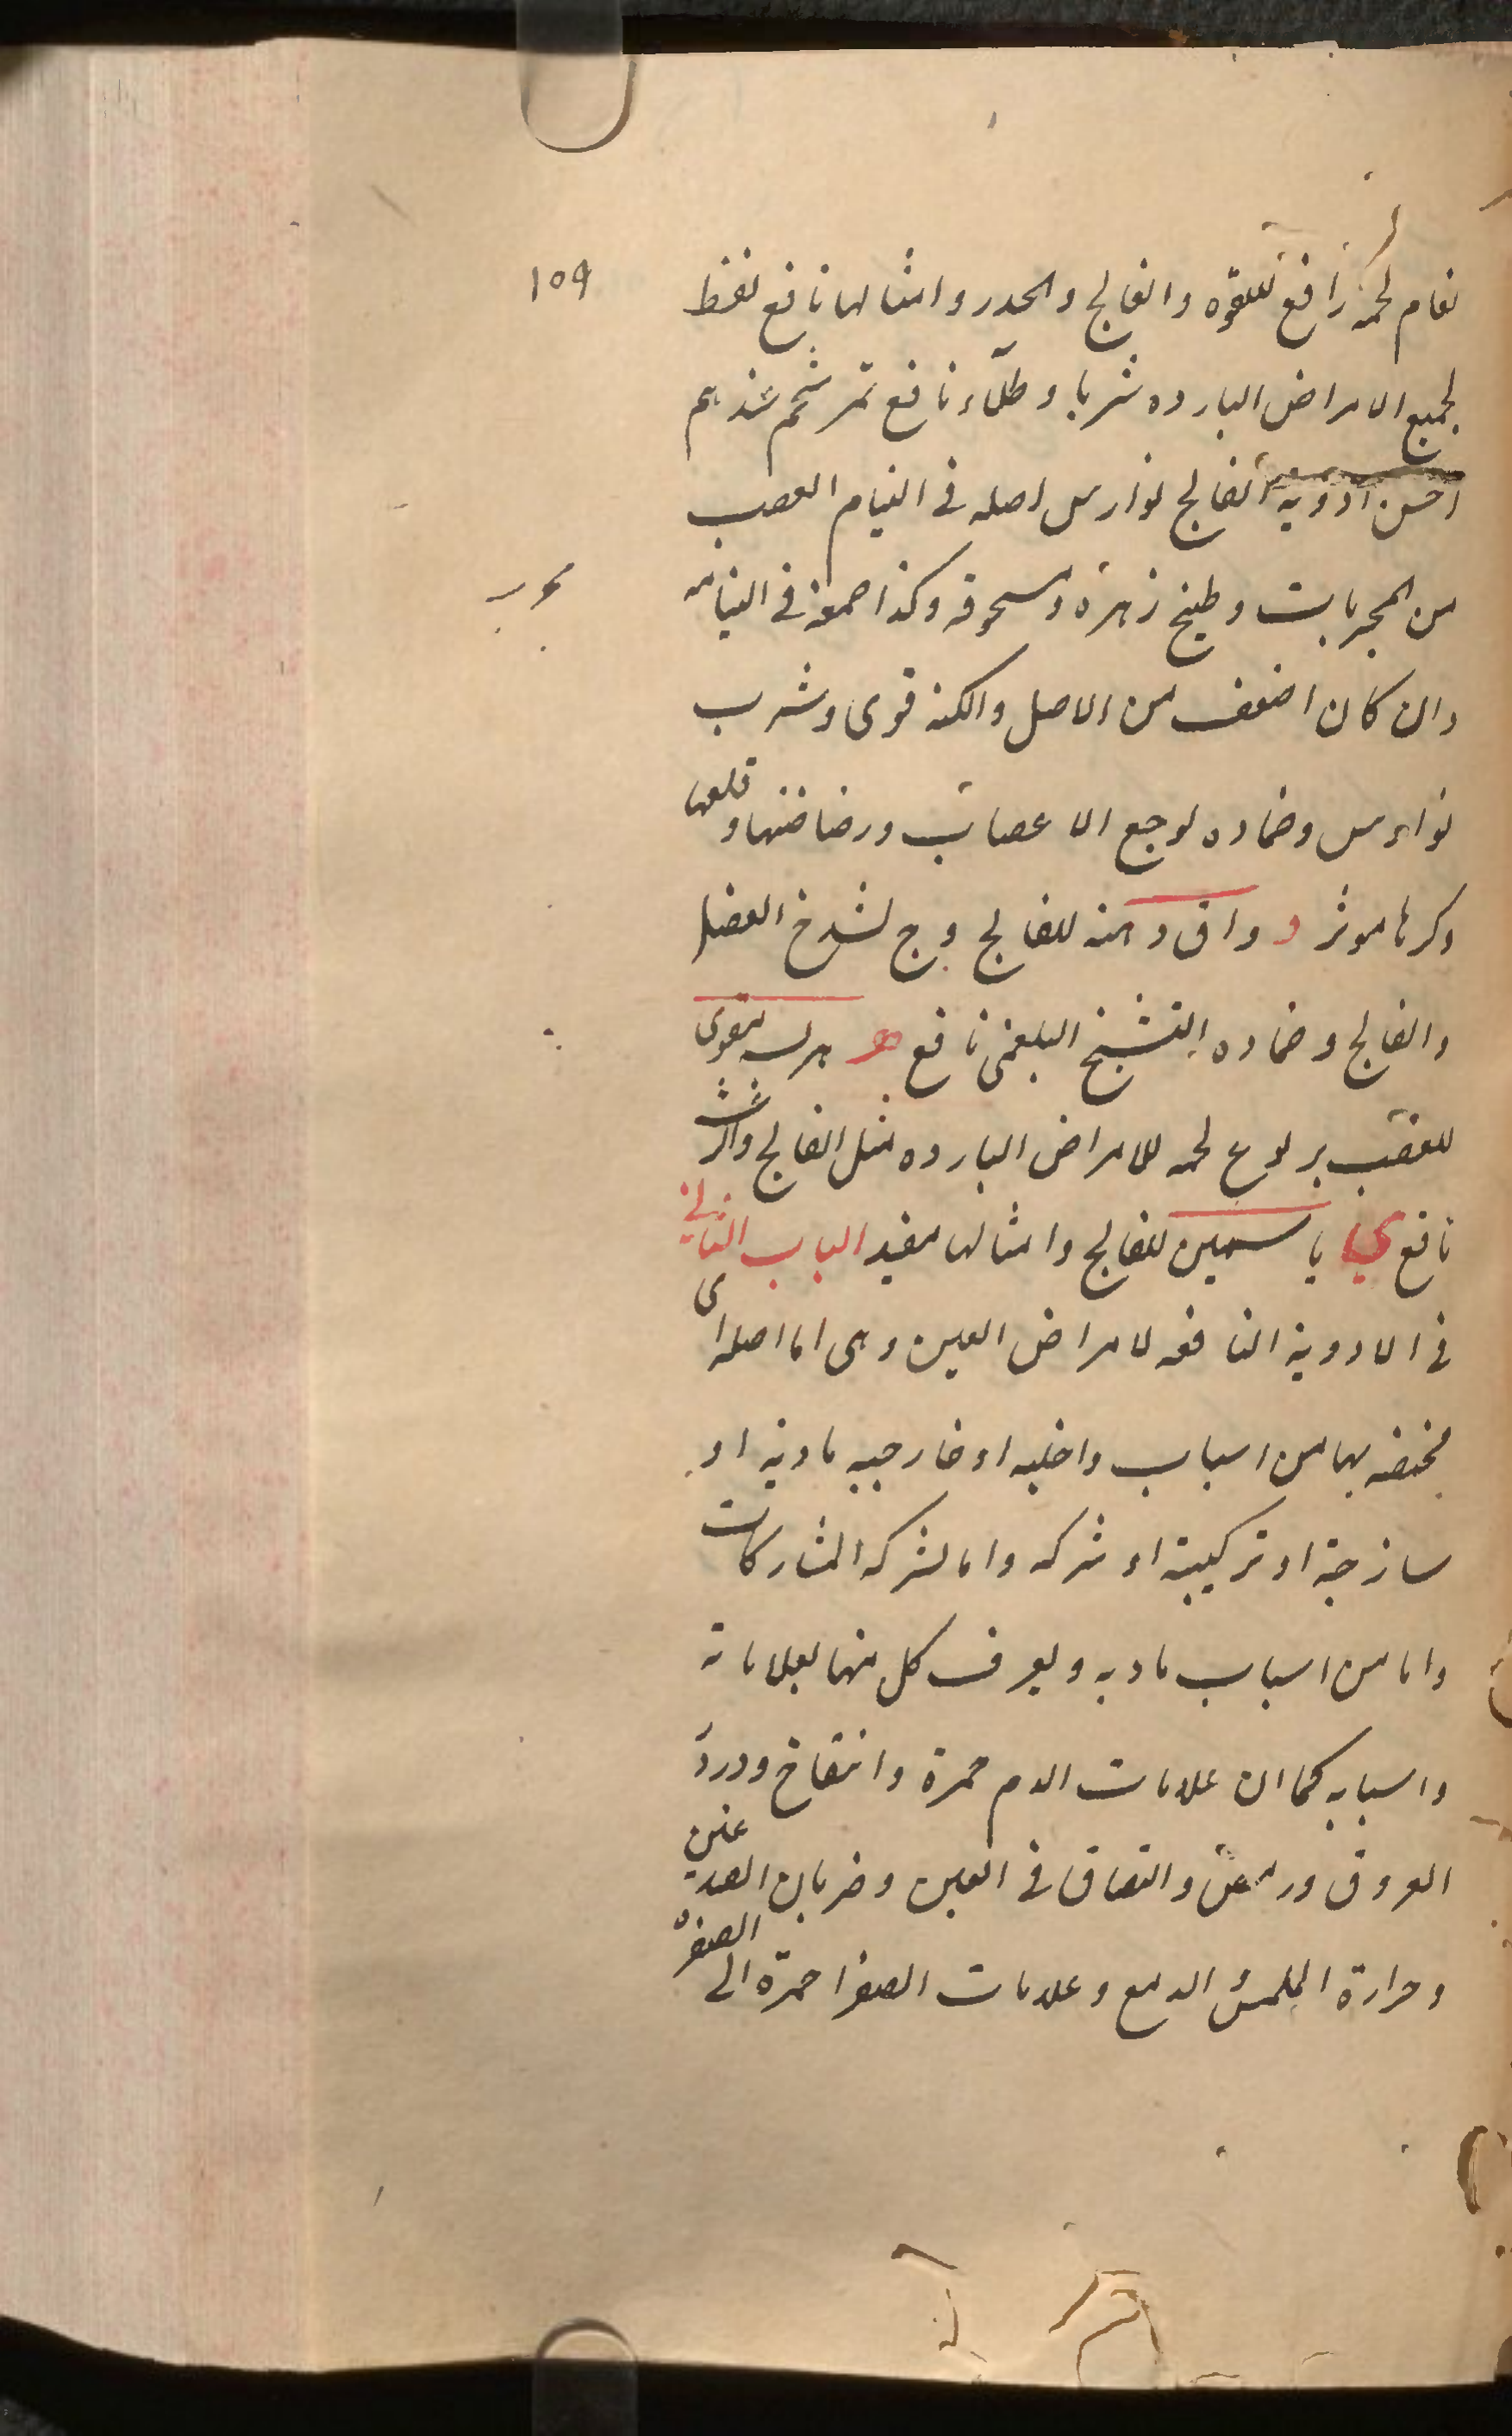 نعام لحمه نافع للقوه والفالج والخدر وامثالها نافع نفط
لجميع الامراض البارده شربا وطلاء نافع نمر شحمه
احسن ادويه الفالج نوارس اصله فى التيام العصب
من المجربات وطبيخ زهره ومسحوقه وكذا صمغه فى
وان كان اضعف من الاصل والكنه قوى وشرب
نوارس وضماده لوجع الاعصاب ورضاضتها و
موثر و واق دهنه للفالج وج لشدخ العضل
والفالج وضماده التشنج البلغمى نافع ه هرلسه
للعصب يربوع لحمه للامراض البارده مثل الفالج
نافع ي ياسمين للفالج وامثالها مفيد الباب الثانى
فى الادوية النافعه لامراض العين وهى اما اصله اى
مختصه بها من اسباب داخليه او خارجيه ماديه او
ساذجة او تركيبية او شركه واما لشركه المشاركات
واما من اسباب ماديه ويعرف كل منها بعلاماته
واسبابه كما ان علامات الدم حمرة وانتفاخ ودرد
العروق ورمص والتصاق فى العين وضربان الصدغين
وحرارة الملمس الدمع وعلامات الصفرا حمرة الى الصفرة
مجرب
١٥٩